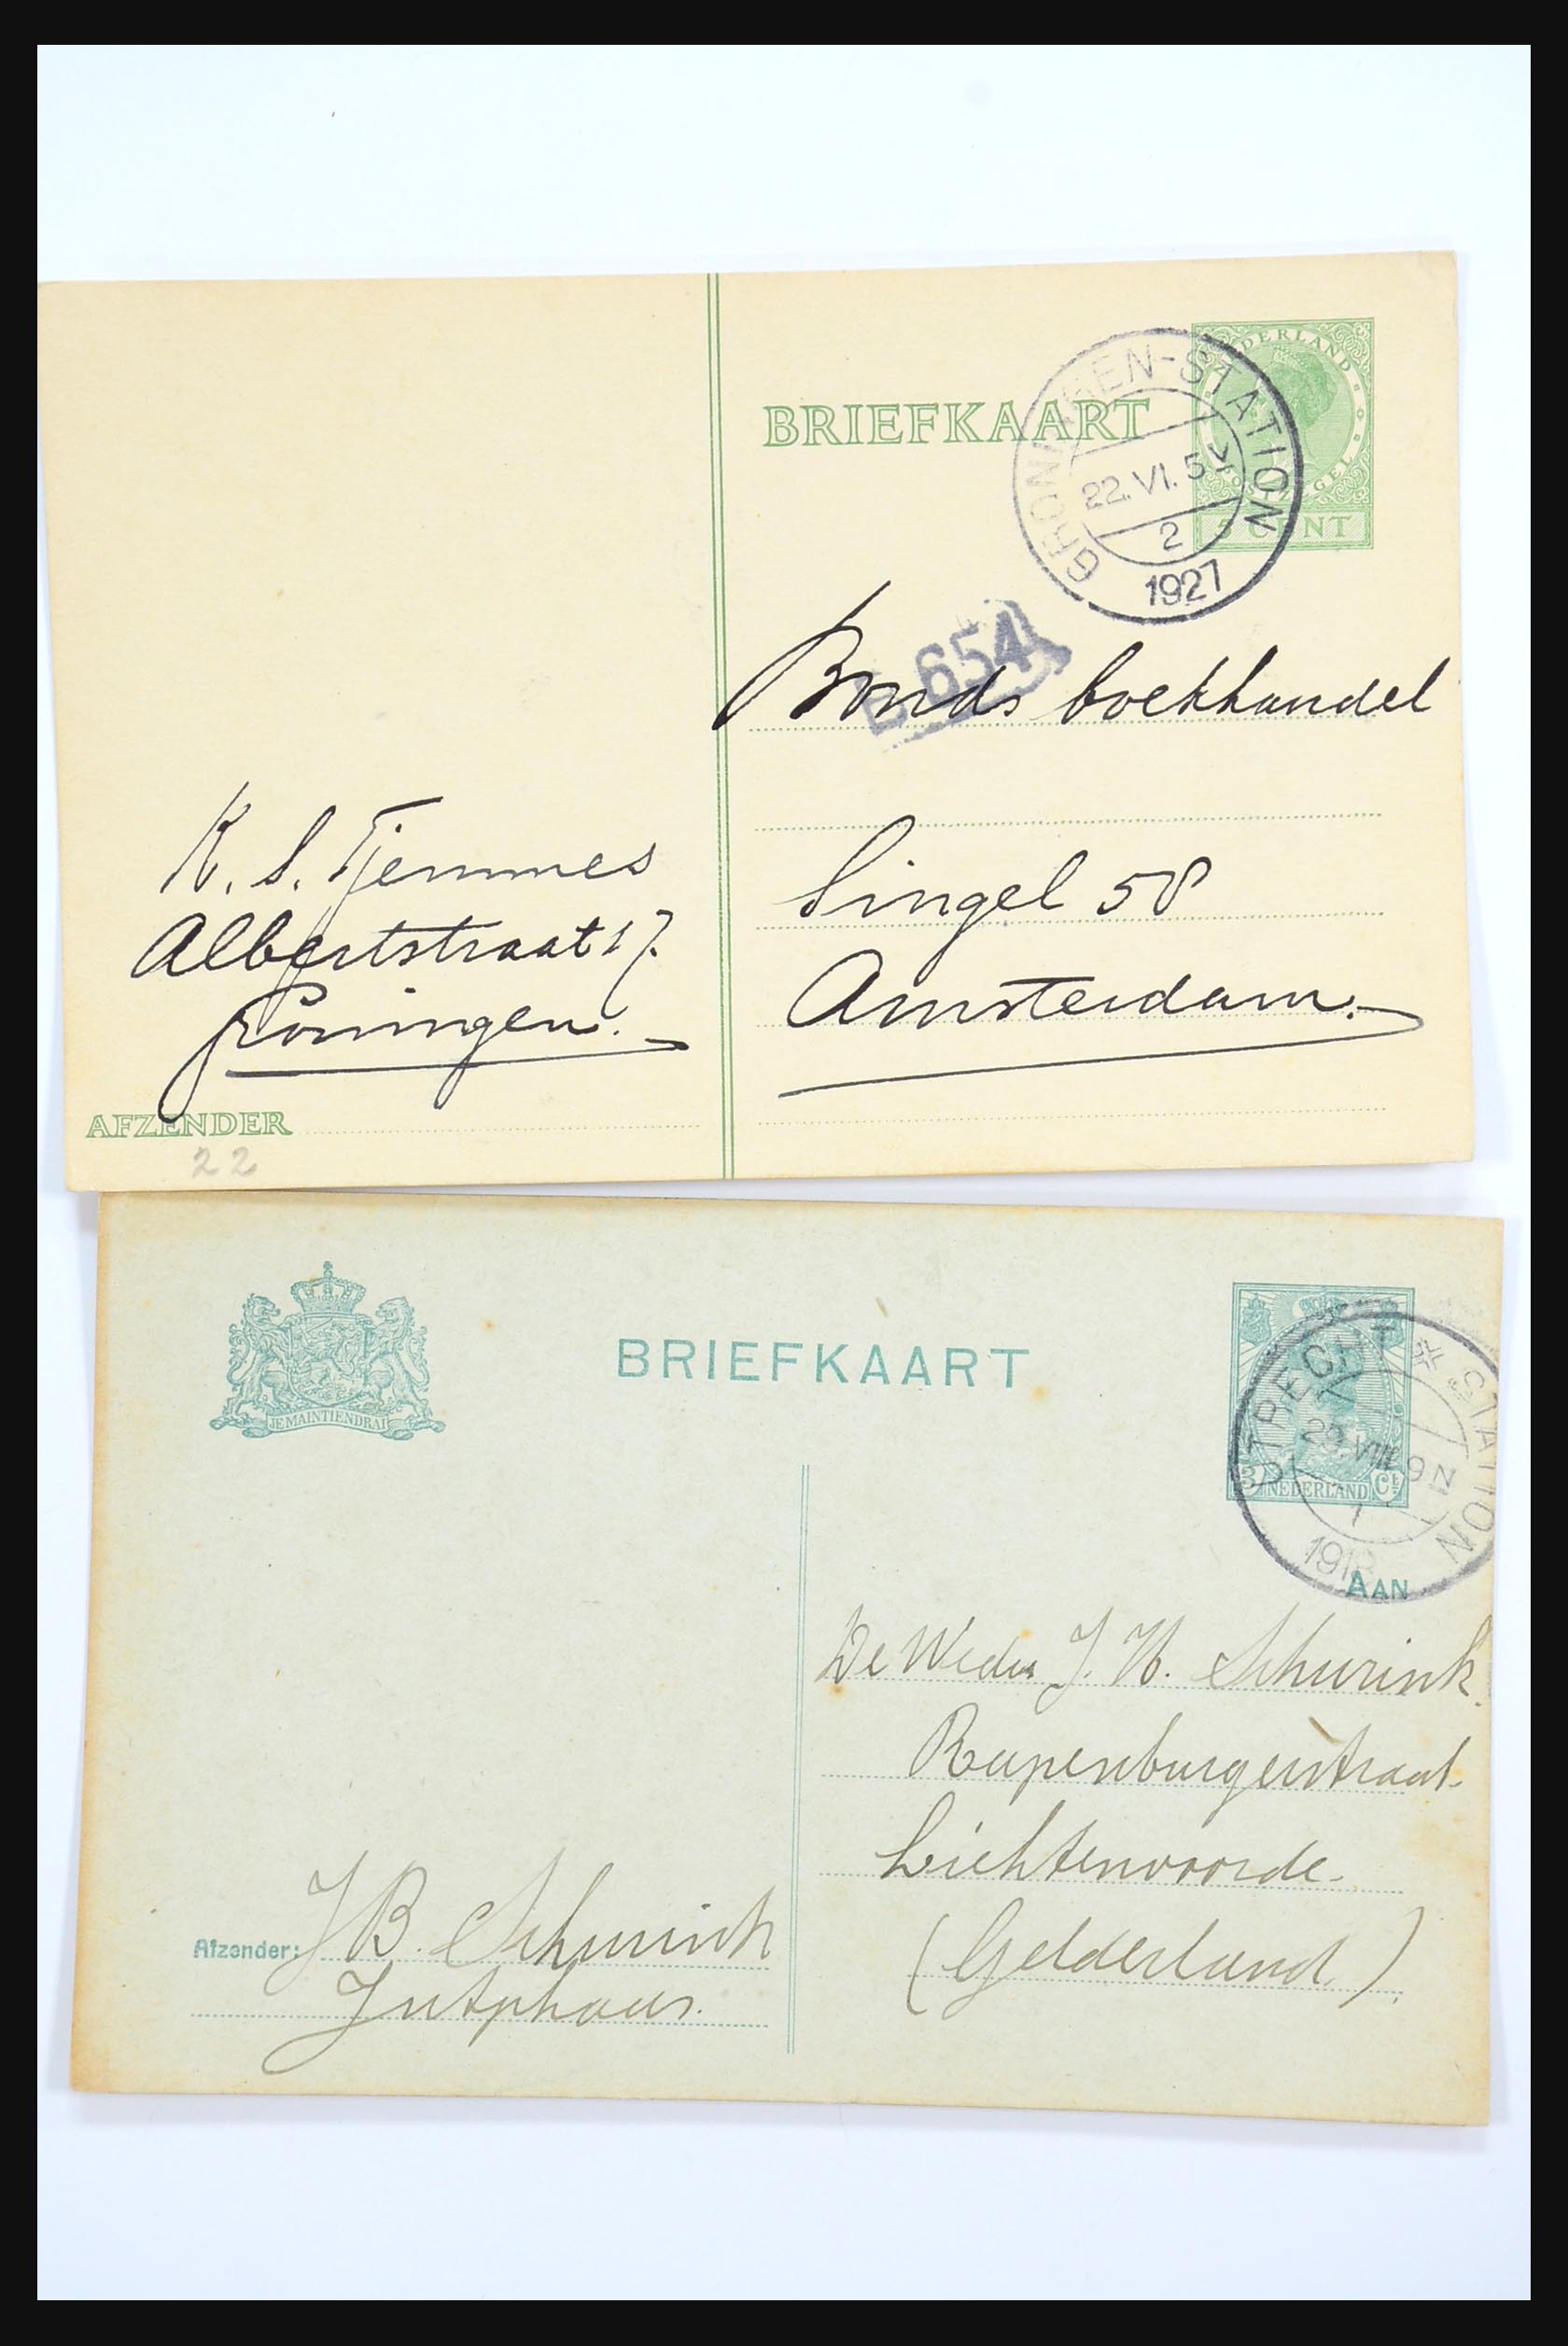 NEDERLAND
POSTZEGEL
5 CENT
BRIEFKAART
GRONINGEN-STATION
22.VI.5
2
1927
E 654
Bonds boekhandel
Singel 58
Amsterdam.
K. S. Tjemmes
Albertstraat 17.
Groningen.
AFZENDER
22
JE MAINTIENDRAI
BRIEFKAART
3 NEDERLAND Ct
UTRECHT STATION
VIII 9 N
1
AAN
De Weduw J. H. Schurink
Rapenburgerstraat
Lichtenvoorde
(Gelderland.)
Afzender: J B. Schurink
Jutphaas.